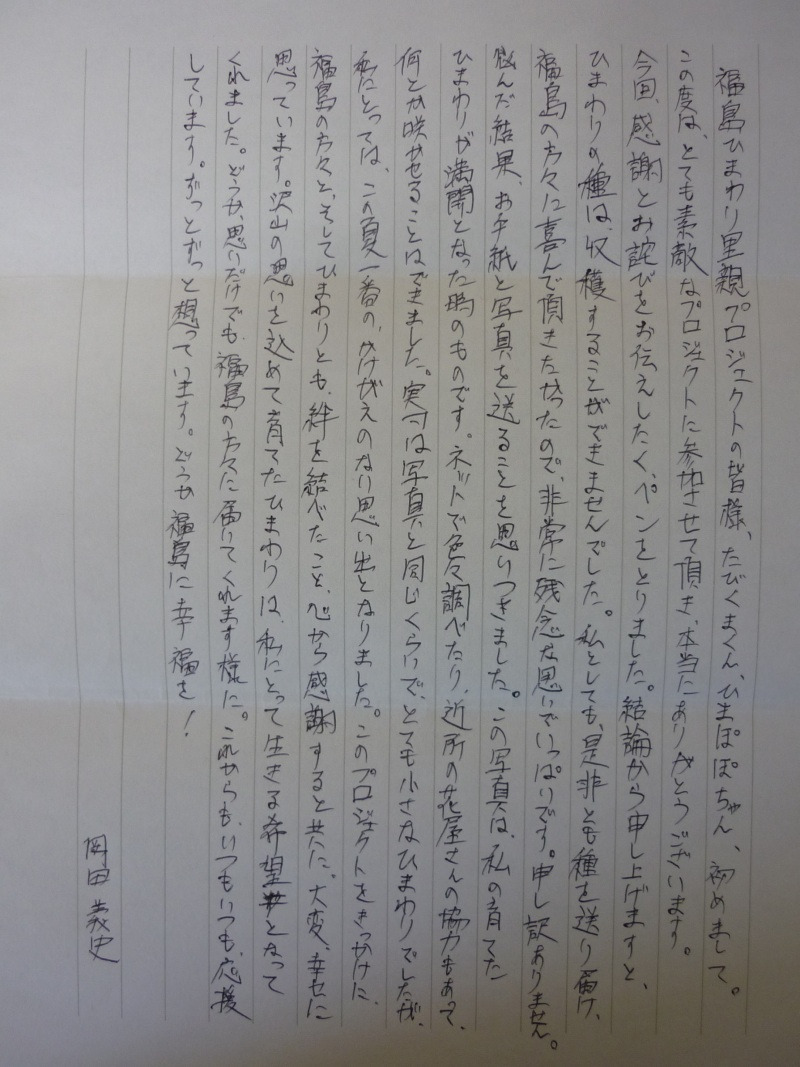 福島ひまわり里親プロジェクトの皆様、たびくまくん、ひまぽぽちゃん、初めまして。
この度は、とても素敵なプロジェクトに参加させて頂き、本当にありがとうございます。
今回、感謝とお詫びをお伝えしたく、ペンをとりました。結論から申し上げますと、
ひまわりの種は、収穫することができませんでした。私としても、是非とも種を送り届け、
福島の方々に喜んで頂きたかったので、非常に残念な思いでいっぱいです。申し訳ありません。
悩んだ結果、お手紙と写真を送ることを思いつきました。この写真は、私の育てた
ひまわりが満開となった時のものです。ネットで色々調べたり、近所の花屋さんの協力もあって、
何とか咲かせることはできました。実寸は写真と同じくらいで、とても小さなひまわりでしたが、
私にとっては、この夏一番の、かけがえのない思い出となりました。このプロジェクトをきっかけに、
福島の方々と、そしてひまわりとも、絆を結べたこと、心から感謝すると共に、大変、幸せに
思っています。沢山の思いを込めて育てたひまわりは、私にとって生きる希望となって
くれました。どうか、思いだけでも、福島の方々に届いてくれます様に。これからも、いつもいつも、応援
しています。ずっとずっと想っています。どうか福島に幸福を!
岡田義史